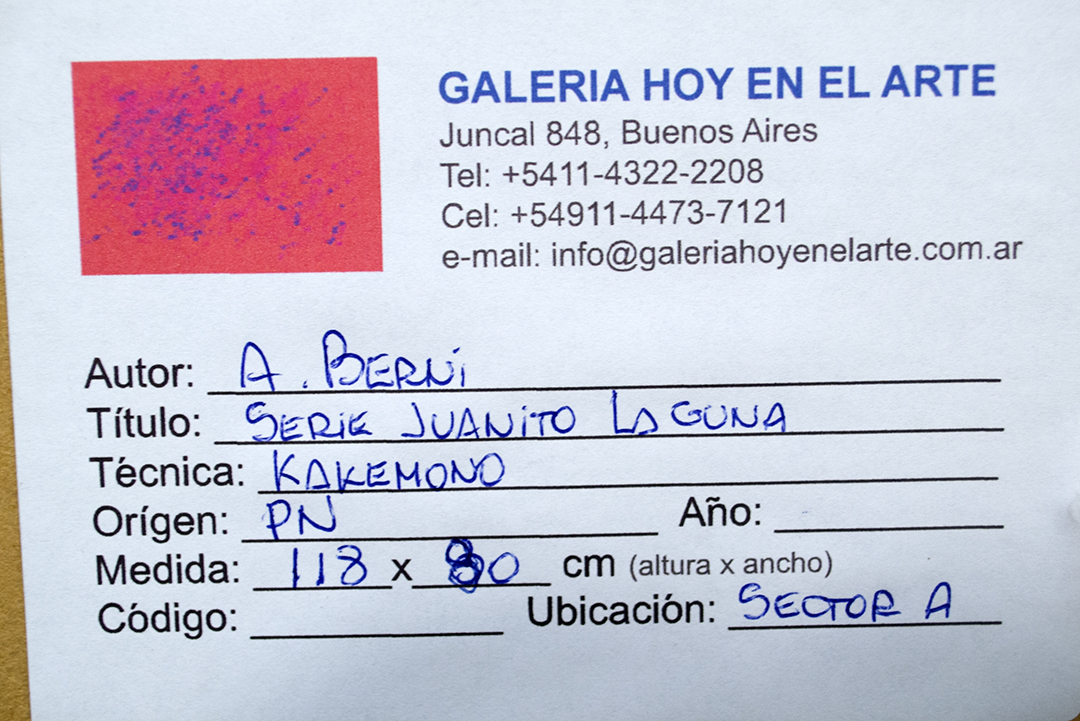 GALERIA HOY EN EL ARTE
Juncal 848, Buenos Aires
Tel: +5411-4322-2208
Cel: +54911-4473-7121
e-mail: info@galeriahoyenelarte.com.ar
Autor: A. BERNI
Título: SERIE JUANITO LAGUNA
Técnica: KAKEMONO
Orígen: PN Año:
Medida: 118 x 80 cm (altura x ancho)
Código: Ubicación: SECTOR A